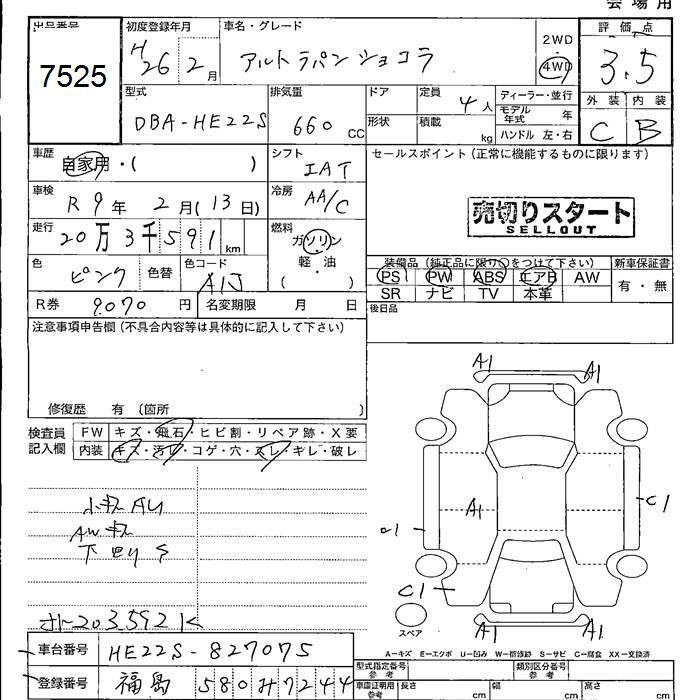 会場用
出品番号
7525
初度登録年月
H26 2月
車名・グレード
アルトラパンショコラ
2WD
4WD
評価点
3.5
型式
DBA-HE22S
排気量
660 CC
ドア
形状
定員 4人
積載 kg
ディーラー・並行
モデル年式 年
ハンドル 左・右
外装 内装
C B
車歴
自家用・( )
シフト
IAT
セールスポイント(正常に機能するものに限ります)
車検
R 9年 2月(13日)
冷房
AA/C
売切りスタート
SELLOUT
走行
20万3千591km
燃料
ガソリン
軽・油
( )
色
ピンク
色替
色コード
A1J
装備品(純正品に限り○をつけて下さい)
PS PW ABS エアB AW
SR ナビ TV 本革
新車保証書
有・無
R券 9070円
名変期限 月 日
後日品
注意事項申告欄(不具合内容等は具体的に記入して下さい)
修復歴 有 (箇所 )
検査員記入欄
FW キズ・飛石・ヒビ割・リペア跡・X要
内装 キズ・汚レ・コゲ・穴・スレ・キレ・破レ
A1 A1
A1
C1
C1
A1 A1
スペア
A-キズ E-エクボ U-凹み W-補修跡 S-サビ C-腐食 XX-交換済
203592K
車台番号 HE22S-827075
登録番号 福島 580み7244
型式指定番号
参考
類別区分番号
参考
車庫証明用
参考
長さ cm
幅 cm
高さ cm